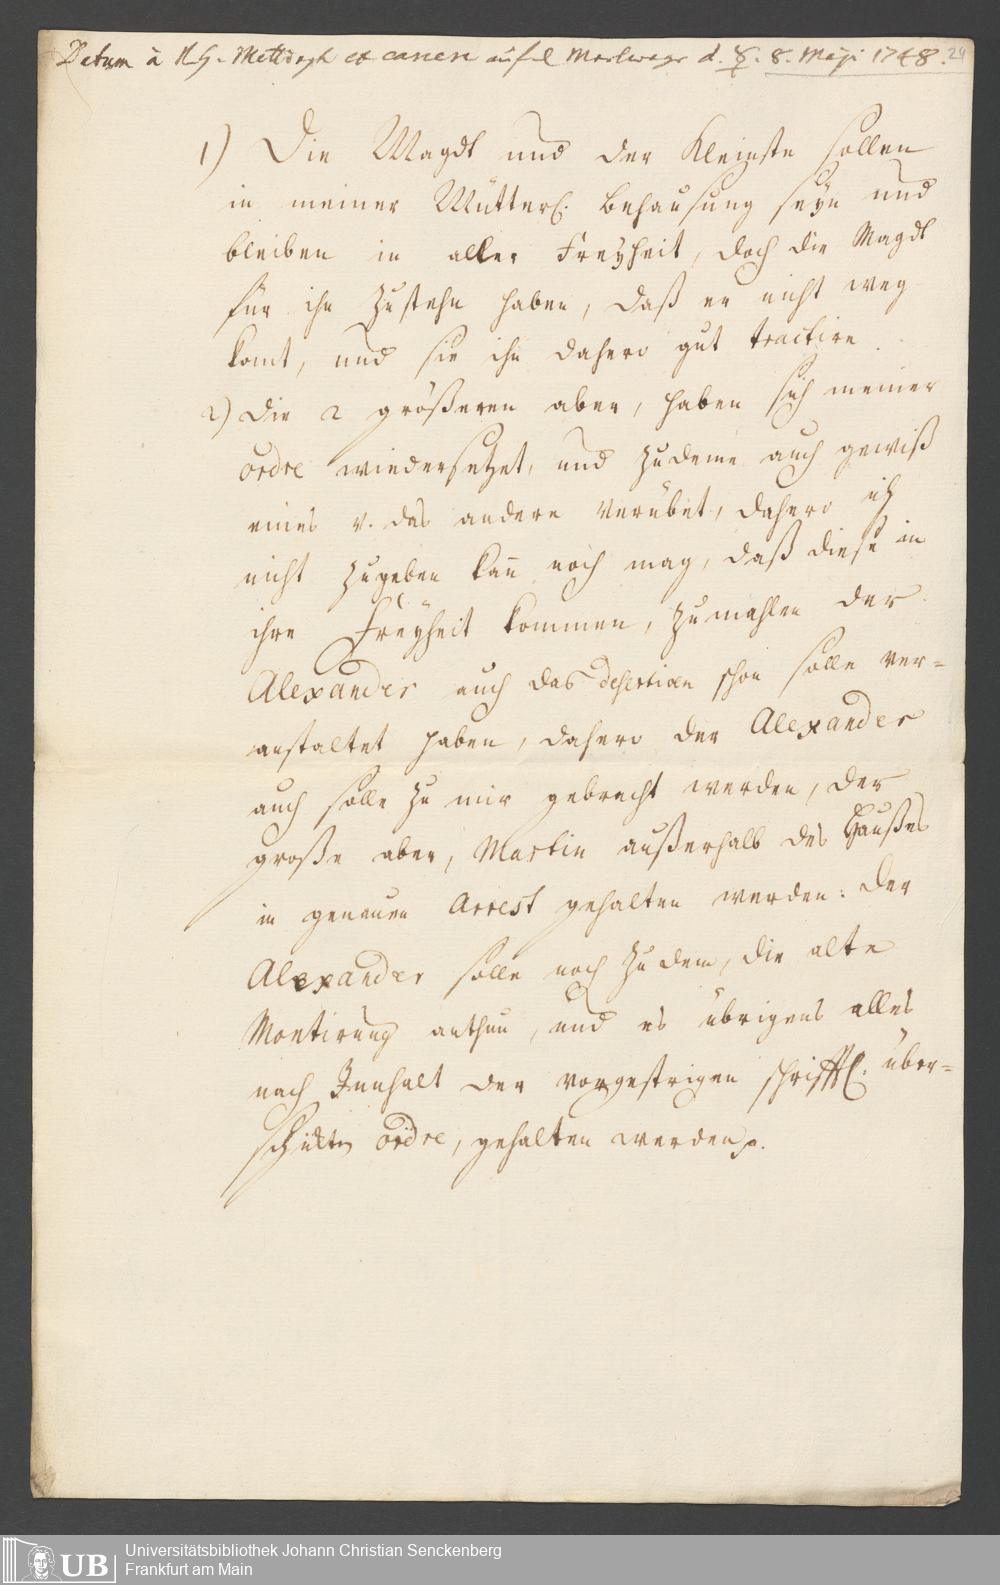 Datum à H. G. et canen auf d. ☿. 8. Maji 1748. 24
1) Die Magdt und der Kleinste sollen
in meiner Mütterl. behausung seyn und
bleiben in aller Freyheit, doch die Magdt
für ihn zustehn haben, daß er nicht weg
komt, und sie ihn dahero gut tractire.
2) die 2 größeren aber, haben sich meiner
ordre wiedersetzet, und zudeme auch gewiß
eines v. das andere verübet, dahero ich
nicht zugeben kan̄ noch mag, daß diese in
ihre Freyheit kommen, zumahlen der
Alexander auch das desertiren schon solle ver=
anstaltet haben, dahero der Alexander
auch solle zu mir gebracht werden, der
große aber, Martin außerhalb des Haußes
in genauen Arrest gehalten werden: der
Alexander solle noch zu dem, die alte
Montirung anthun, und es übrigens alles
nach Innhalt der vorgestrigen schrifftl. über=
schickten ordre, gehalten werden p.
UB Universitätsbibliothek Johann Christian Senckenberg
Frankfurt am Main